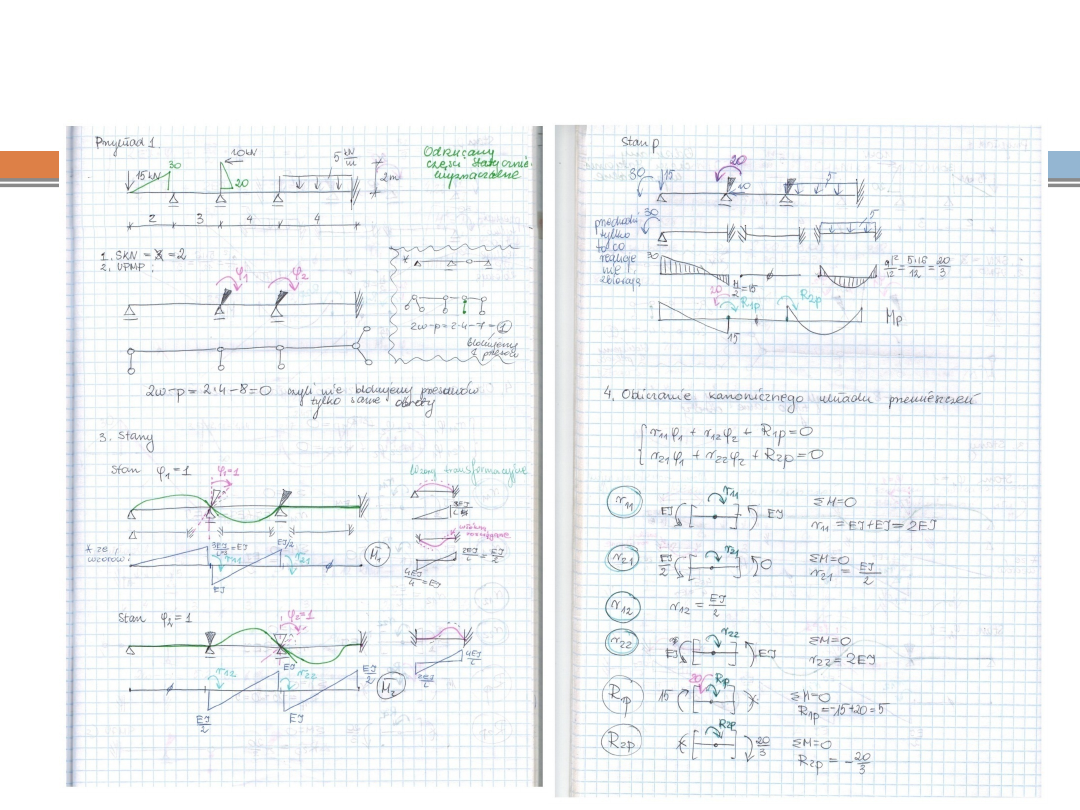 Przykład 1.
15 kN
30
10 kN
20
5 kN/m
2m
Odrzucamy
części statycznie
wyznaczalne
2
3
4
4
1. SKN = 2
2. UPMP:
φ1
φ2
2w-p=2·4-7=1
blokujemy
1 przesuw
2w-p=2·4-8=0 czyli nie blokujemy przesuwów
tylko same obroty
3. Stany
Stan φ1=1
φ1=1
Wzory transformacyjne
* ze
wzorów
3EJ/L=EJ
r11
EJ/2
r21
EJ
M1
3EJ/L
2EJ/L=EJ/2
4EJ/4=EJ
Stan φ2=1
φ2=1
r12
EJ
r22
EJ/2
M2
EJ/2
EJ
4EJ/L
2EJ/L
Stan p
30
15
20
10
5
przechodzi
tylko
to co
30
5
30
M/2=15
ql²/12=5·16/12=20/3
20
R1p
R2p
Mp
15
4. Obliczanie kanonicznego układu przemieszczeń
r11φ1 + r12φ2 + R1p=0
r21φ1 + r22φ2 + R2p=0
r11 EJ r11 EJ ΣM=0
r11=EJ+EJ=2EJ
r21 EJ/2 r21 0 ΣM=0
r21 = EJ/2
r12 r12 = EJ/2
r22 EJ r22 EJ ΣM=0
r22=2EJ
R1p 15 20 R1p ΣM=0
R1p=-15+20=5
R2p R2p 20/3 ΣM=0
R2p = -20/3